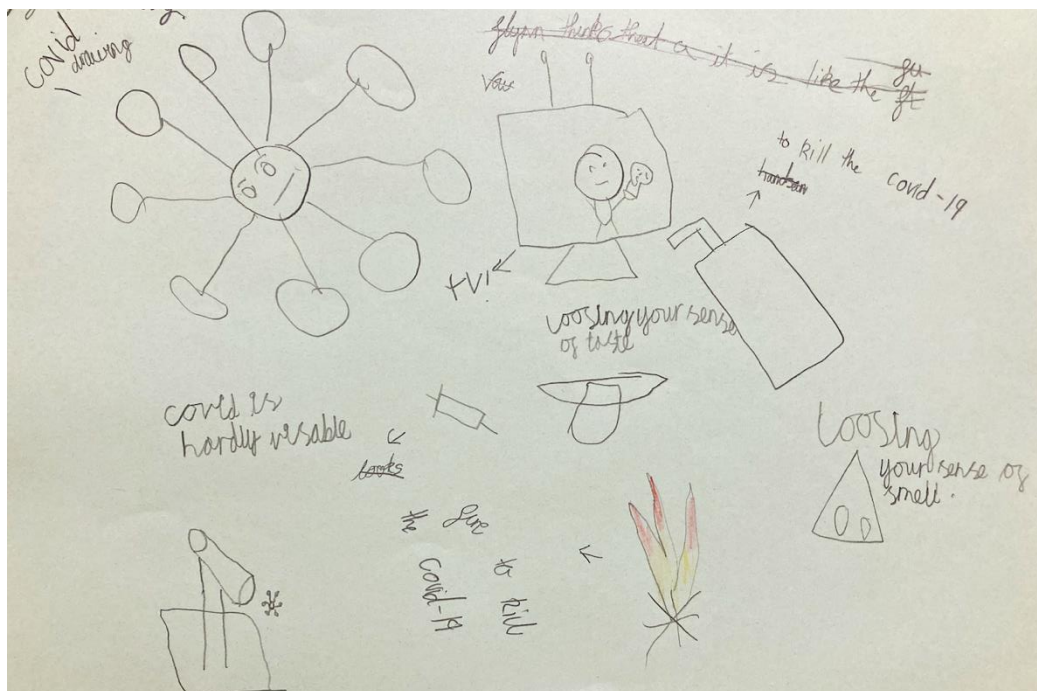 covid
drawing
flynn thinks that a it is like the
tv!
to kill the covid-19
loosing your sense
of taste
covid is
hardly visable
looks
Loosing
your sense of
smell.
the fire
to kill
covid-19